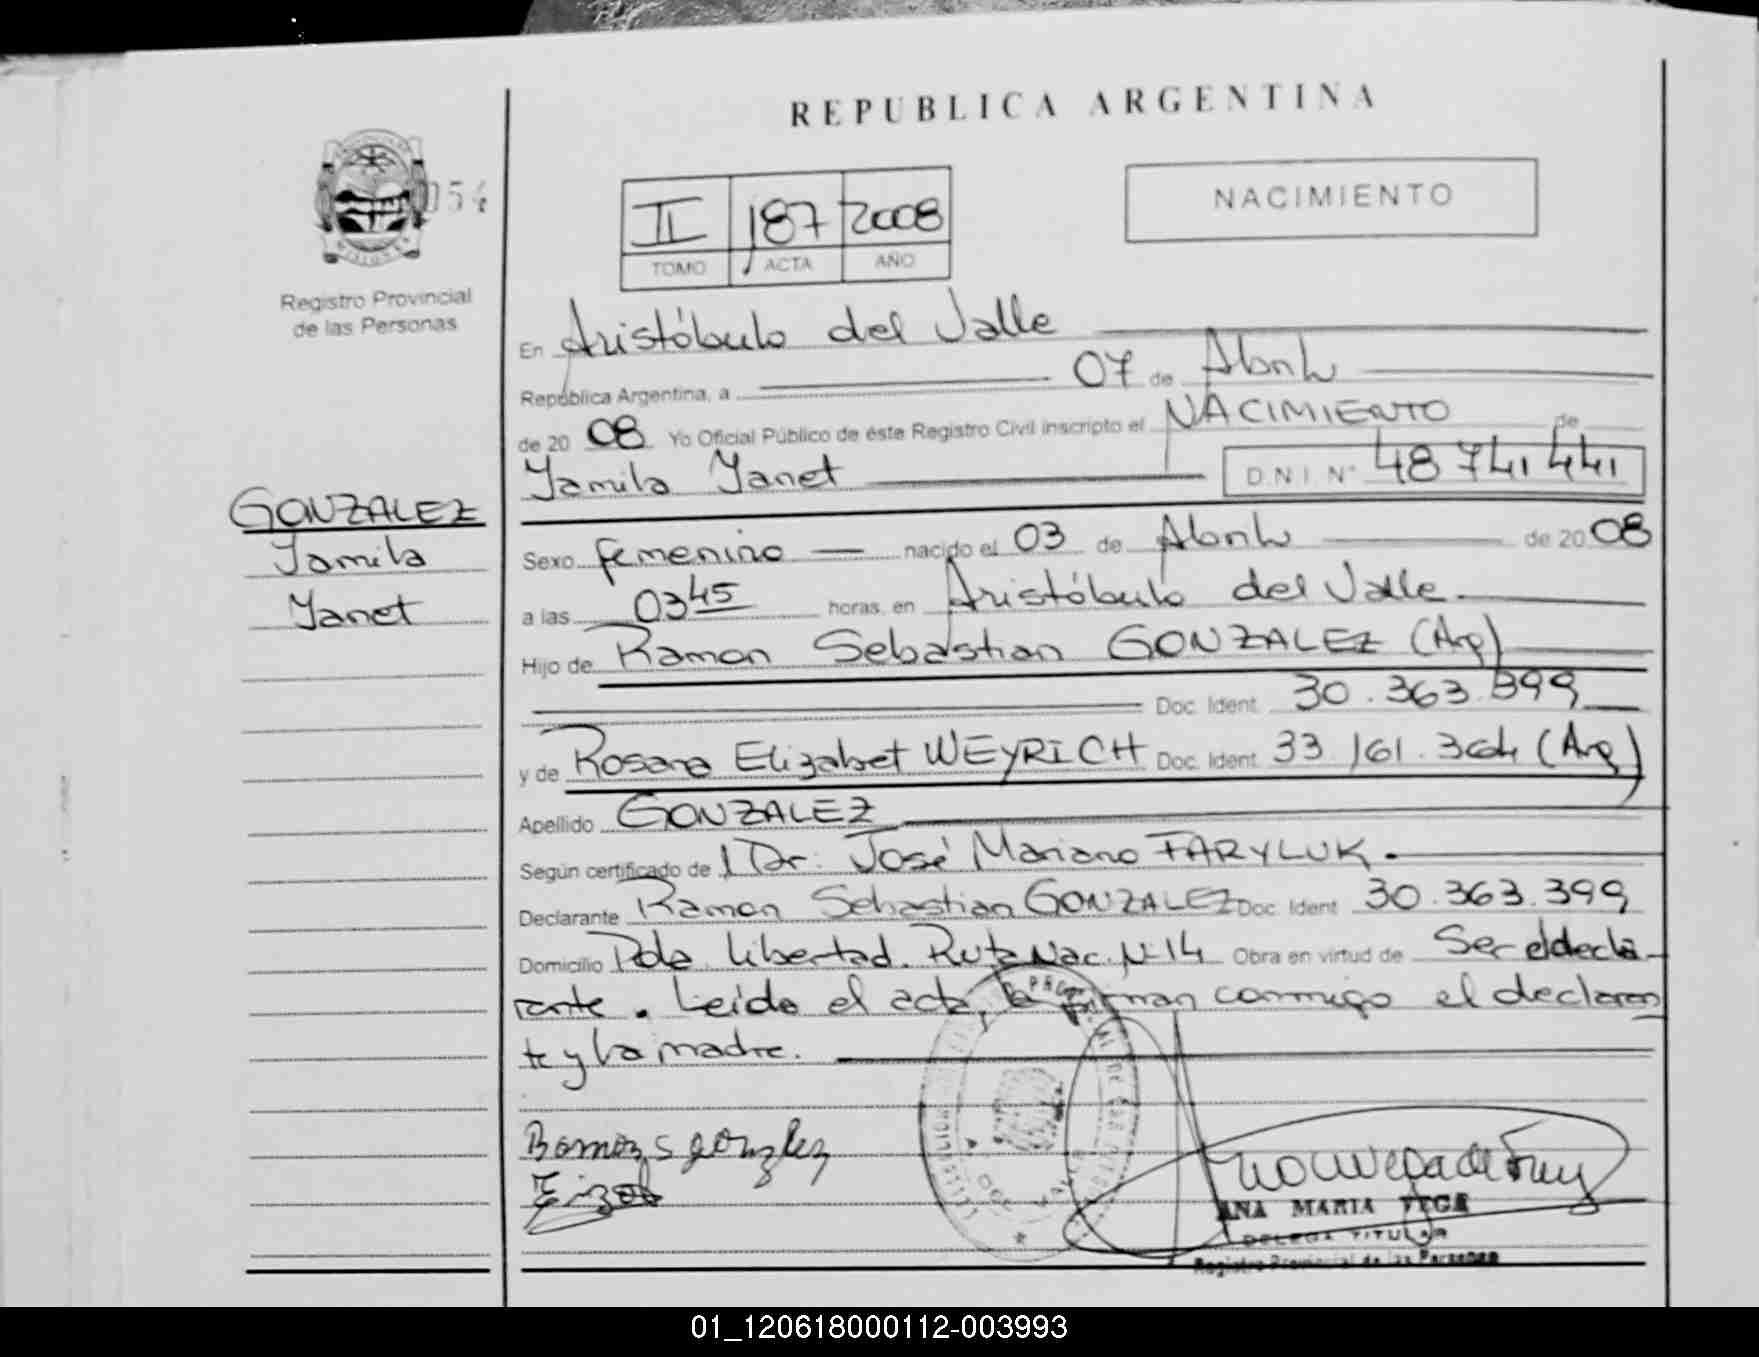 REPUBLICA ARGENTINA
054
II 187 2008
TOMO ACTA AÑO
NACIMIENTO
Registro Provincial
de las Personas
En Aristóbulo del Valle
República Argentina, a 07 de Abril
de 20 08 Yo Oficial Público de éste Registro Civil inscripto el NACIMIENTO de
Yamila Yanet D.N.I. N° 48 741 441
GONZALEZ
Yamila
Yanet
Sexo femenino nacido el 03 de Abril de 20 08
a las 03 45 horas, en Aristóbulo del Valle.
Hijo de Ramon Sebastian GONZALEZ (Arg)
Doc. Ident. 30.363.399
y de Rosana Elizabet WEYRICH Doc. Ident. 33.161.364 (Arg)
Apellido GONZALEZ
Según certificado de Dr. José Mariano FARYLUK.
Declarante Ramon Sebastian GONZALEZ Doc. Ident. 30.363.399
Domicilio Pdle. Libertad. Ruta Nac. Nº 14 Obra en virtud de Ser el decla-
rante. Leída el acta, la firman conmigo el declaran
te y la madre.
Ramon S gonzlez
ANA MARIA VEGA
DELEGA TITULAR
Registro Provincial de las Personas
01_120618000112-003993